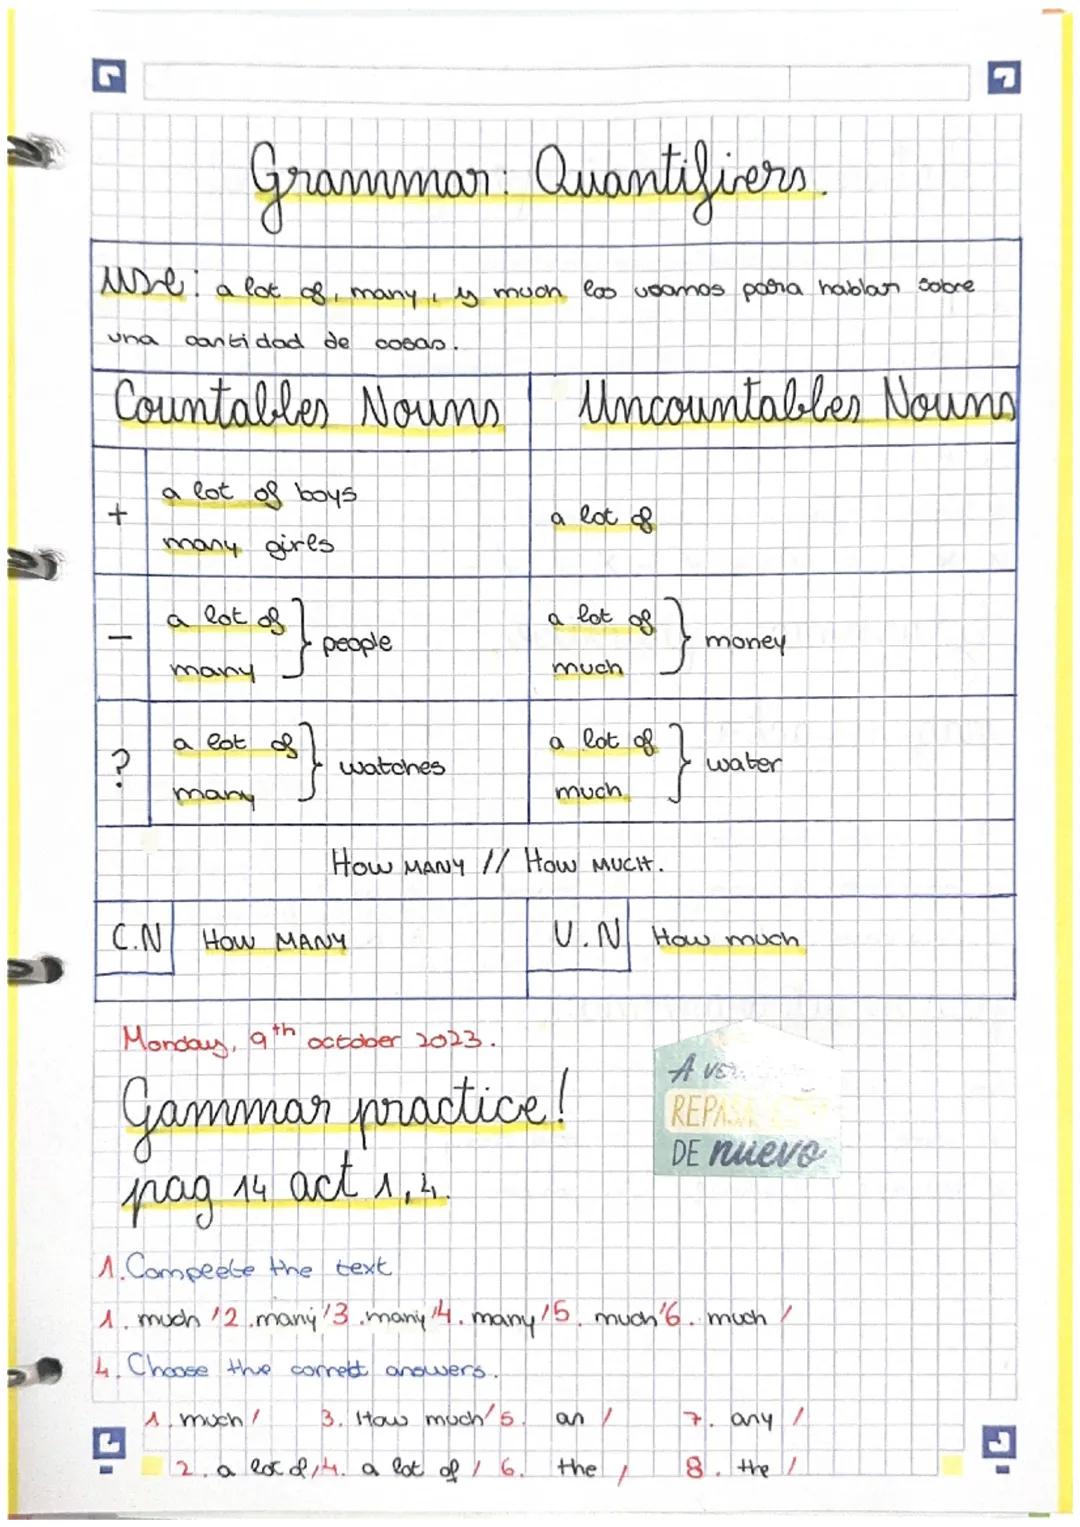 Grammar: Quantifiers.
Use: a lot of, many, y much los usamos para hablar sobre
una cantidad de cosas.
Countables Nouns Uncountables Nouns
+ a lot of boys
many girls
a lot of
- a lot of
many } people
a lot of
much } money
? a lot of
many } watches
a lot of
much } water
How MANY // How MUCH.
C.N How MANY U.N How much
Monday, 9th october 2023.
Gammar practice!
pag 14 act 1, 4.
A
DE nuevo
1. Complete the text
1. much / 2. many / 3. many / 4. many / 5. much / 6. much /
4. Choose the correct answers.
1. much / 3. How much / 5. an / 7. any /
2. a lot of / 4. a lot of / 6. the / 8. the /